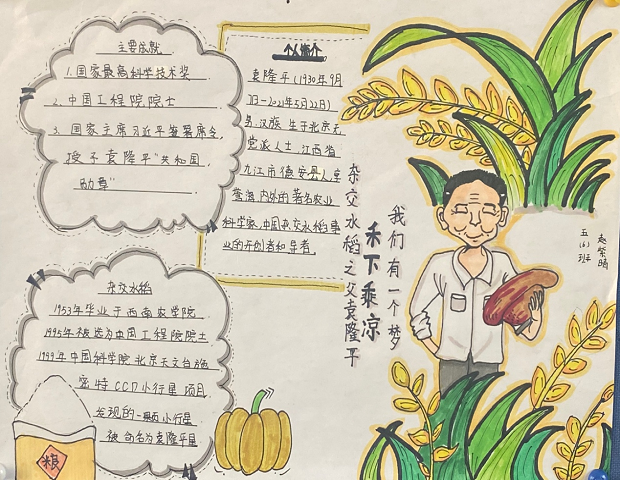 主要成就
1.国家最高科学技术奖
2.中国工程院院士
3.国家主席习近平签署席令,
授予袁隆平“共和国
勋章”
个人简介
袁隆平(1930年9月
7日-2021年5月22日)
男,汉族,生于北京,无
党派人士,江西省
九江市德安县人,享
誉海内外的著名农业
科学家,中国杂交水稻事
业的开创者和导者,
杂交水稻
1953年毕业于西南农学院
1995年被选为中国工程院院士
1999年中国科学院北京天文台施
密特CCD小行星项目
发现的一颗小行星
被命名为袁隆平星
粮
杂交水稻之父袁隆平
禾下乘凉
我们有一个梦
五(6)班